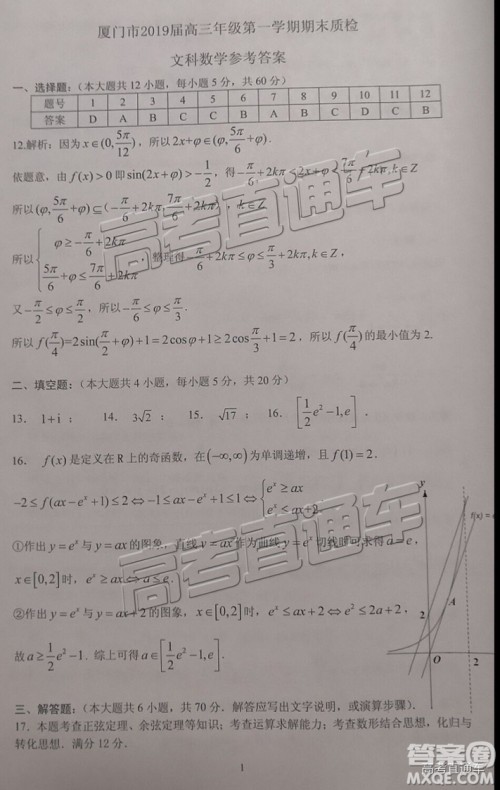 厦门市2019届高三年级第一学期期末质检
文科数学参考答案
一、选择题：（本大题共 12 小题，每小题 5 分，共 60 分）
题号 1 2 3 4 5 6 7 8 9 10 11 12
答案 D A B D A C B A C D C B
12.解析：因为 x∈(0, 5π/12)，所以 2x+φ∈(φ, 5π/6+φ).
依题意，由 f(x)>0 即 sin(2x+φ)>-1/2，得 -π/6+2kπ<2x+φ<7π/6+2kπ, k∈Z
所以 (φ, 5π/6+φ)⊆(-π/6+2kπ, 7π/6+2kπ), k∈Z
所以 { φ≥-π/6+2kπ
5π/6+φ≤7π/6+2kπ ，整理得 -π/6+2kπ≤φ≤π/3+2kπ, k∈Z,
又 -π/2≤φ≤π/2，所以 -π/6≤φ≤π/3.
所以 f(π/4)=2sin(π/2+φ)+1=2cosφ+1≥2cosπ/3+1=2，所以 f(π/4) 的最小值为 2.
二、填空题：（本大题共 4 小题，每小题 5 分，共 20 分）
13． 1+i ； 14． 3√2 ； 15． √17 ； 16． [1/2e²-1,e] ．
16． f(x) 是定义在 R 上的奇函数，在 (-∞,∞) 为单调递增，且 f(1)=2．
-2≤f(ax-eˣ+1)≤2⇔-1≤ax-eˣ+1≤1⇔{ eˣ≥ax
eˣ≤ax+2
①作出 y=eˣ 与 y=ax 的图象，直线 y=ax 作为曲线 y=eˣ 切线时可求得 a=e，
x∈[0,2]时，eˣ≥ax⇔a≤e．
②作出 y=eˣ 与 y=ax+2 的图象，x∈[0,2]时，eˣ≤ax+2⇔e²≤2a+2，
故 a≥1/2e²-1．综上可得 a∈[1/2e²-1,e]．
y
2
A
O
2
三、解答题：（本大题共 6 小题，共 70 分．解答应写出文字说明，或演算步骤）．
17．本题考查正弦定理、余弦定理等知识；考查运算求解能力；考查数形结合思想，化归与
转化思想．满分 12 分．
1
高考直通车
高考直通车
答案圈
高考直通车
MXQE.COM